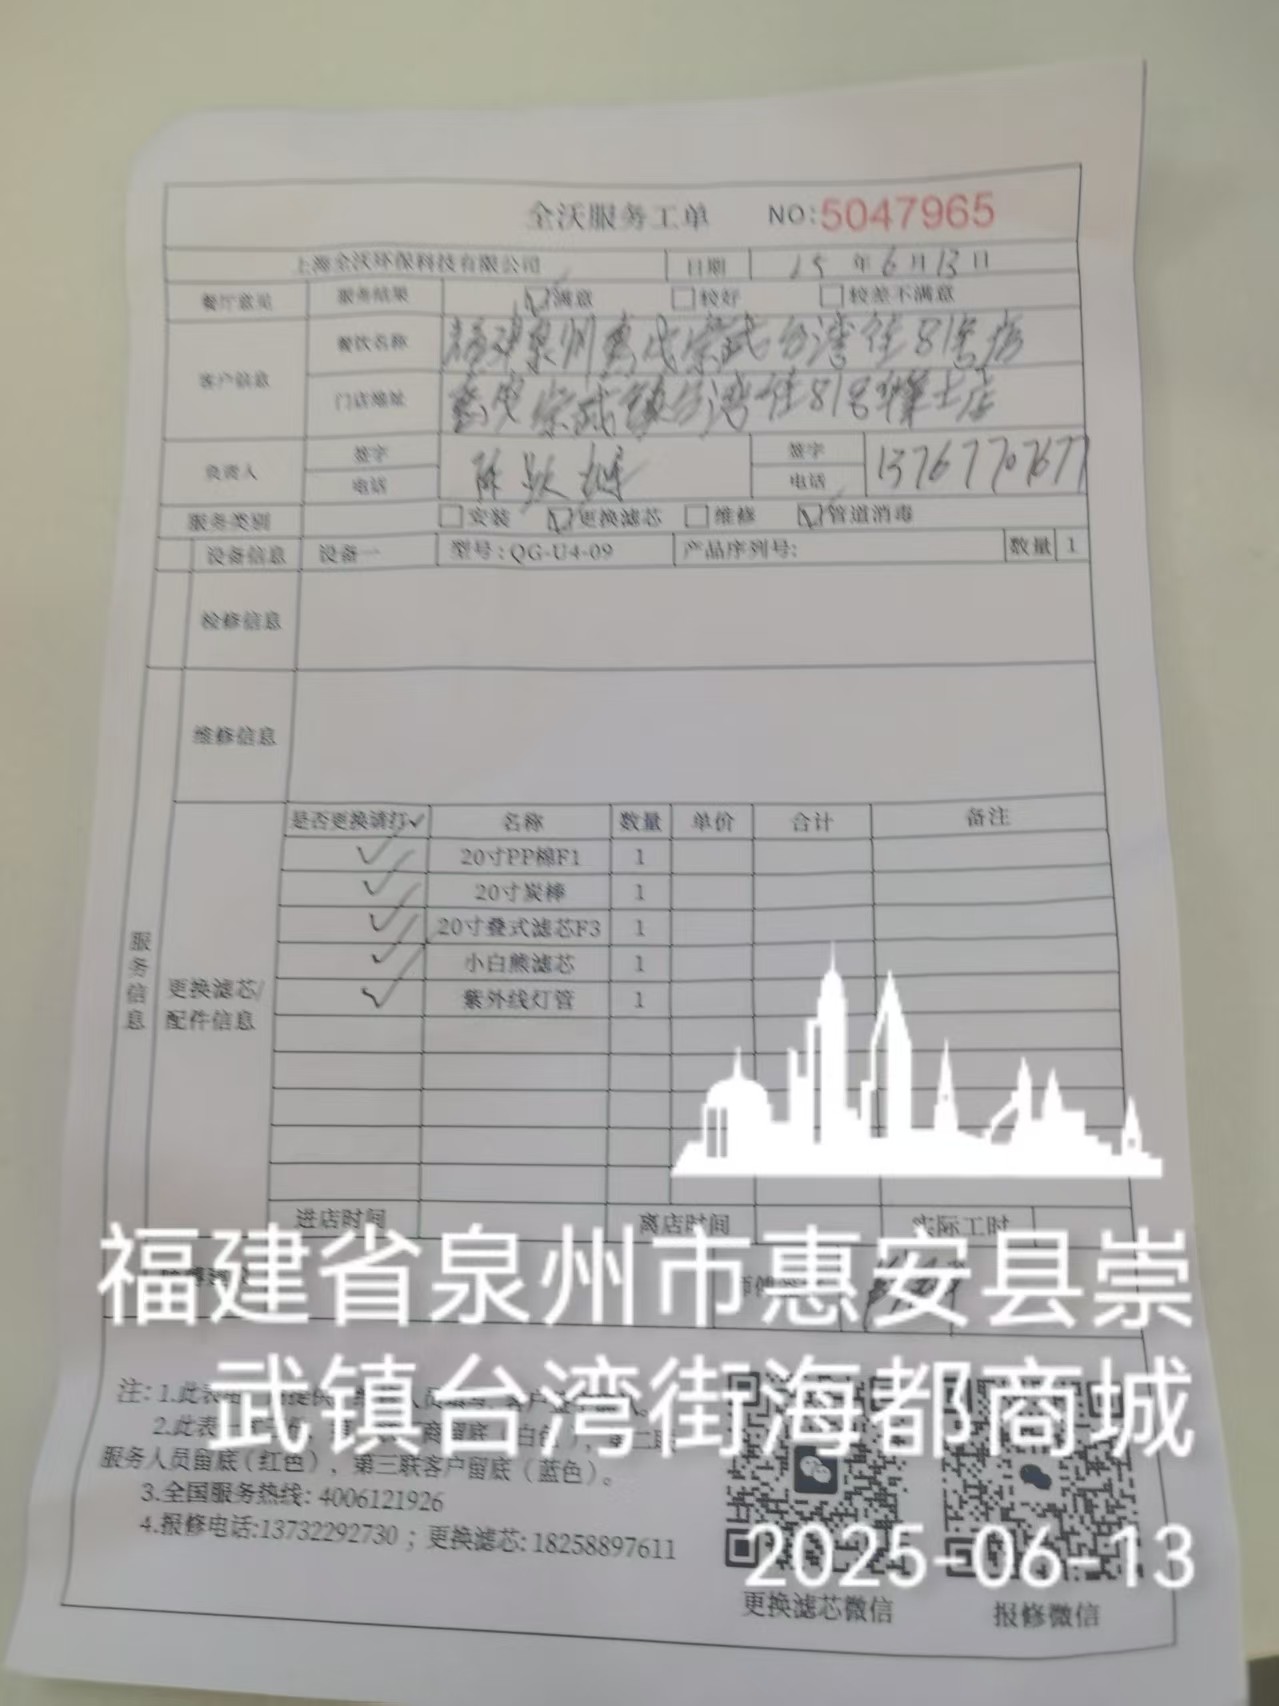 全沃服务工单 NO:5047965
上海全沃环保科技有限公司 日期 25 年 6 月 13 日
餐厅意见 服务结果 满意 较好 较差不满意
客户信息 餐饮名称 福建泉州惠安崇武台湾街81号店
门店地址 惠安崇武镇台湾街81号华莱士店
负责人 签字 陈 签字
电话 电话 13767707677
服务类别 安装 更换滤芯 维修 管道消毒
设备信息 设备一 型号:QG-U4-09 产品序列号: 数量 1
检修信息
维修信息
服务信息
更换滤芯/配件信息
是否更换请打✓ 名称 数量 单价 合计 备注
✓ 20寸PP棉F1 1
✓ 20寸炭棒 1
✓ 20寸叠式滤芯F3 1
✓ 小白熊滤芯 1
✓ 紫外线灯管 1
进店时间 离店时间 实际工时
福建省泉州市惠安县崇
武镇台湾街海都商城
注: 1.此表
2.此表
服务人员留底(红色)，第三联客户留底(蓝色)。
3.全国服务热线: 4006121926
4.报修电话:13732292730 ; 更换滤芯: 18258897611
2025-06-13
更换滤芯微信 报修微信